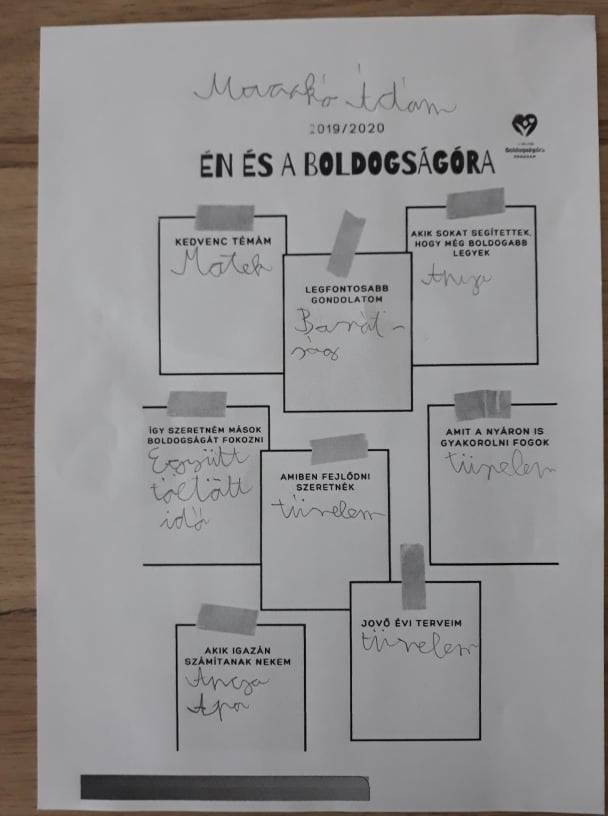 Ádám
2019/2020
ÉN ÉS A BOLDOGSÁGÓRA
Boldogságóra
PROGRAM
KEDVENC TÉMÁM
Matek
LEGFONTOSABB
GONDOLATOM
Barát-
ság
AKIK SOKAT SEGÍTETTEK,
HOGY MÉG BOLDOGABB
LEGYEK
Anya
ÍGY SZERETNÉM MÁSOK
BOLDOGSÁGÁT FOKOZNI
Együtt
töltött
idő
AMIBEN FEJLŐDNI
SZERETNÉK
türelem
AMIT A NYÁRON IS
GYAKOROLNI FOGOK
türelem
AKIK IGAZÁN
SZÁMÍTANAK NEKEM
Anya
Apa
JOVŐ ÉVI TERVEIM
türelem